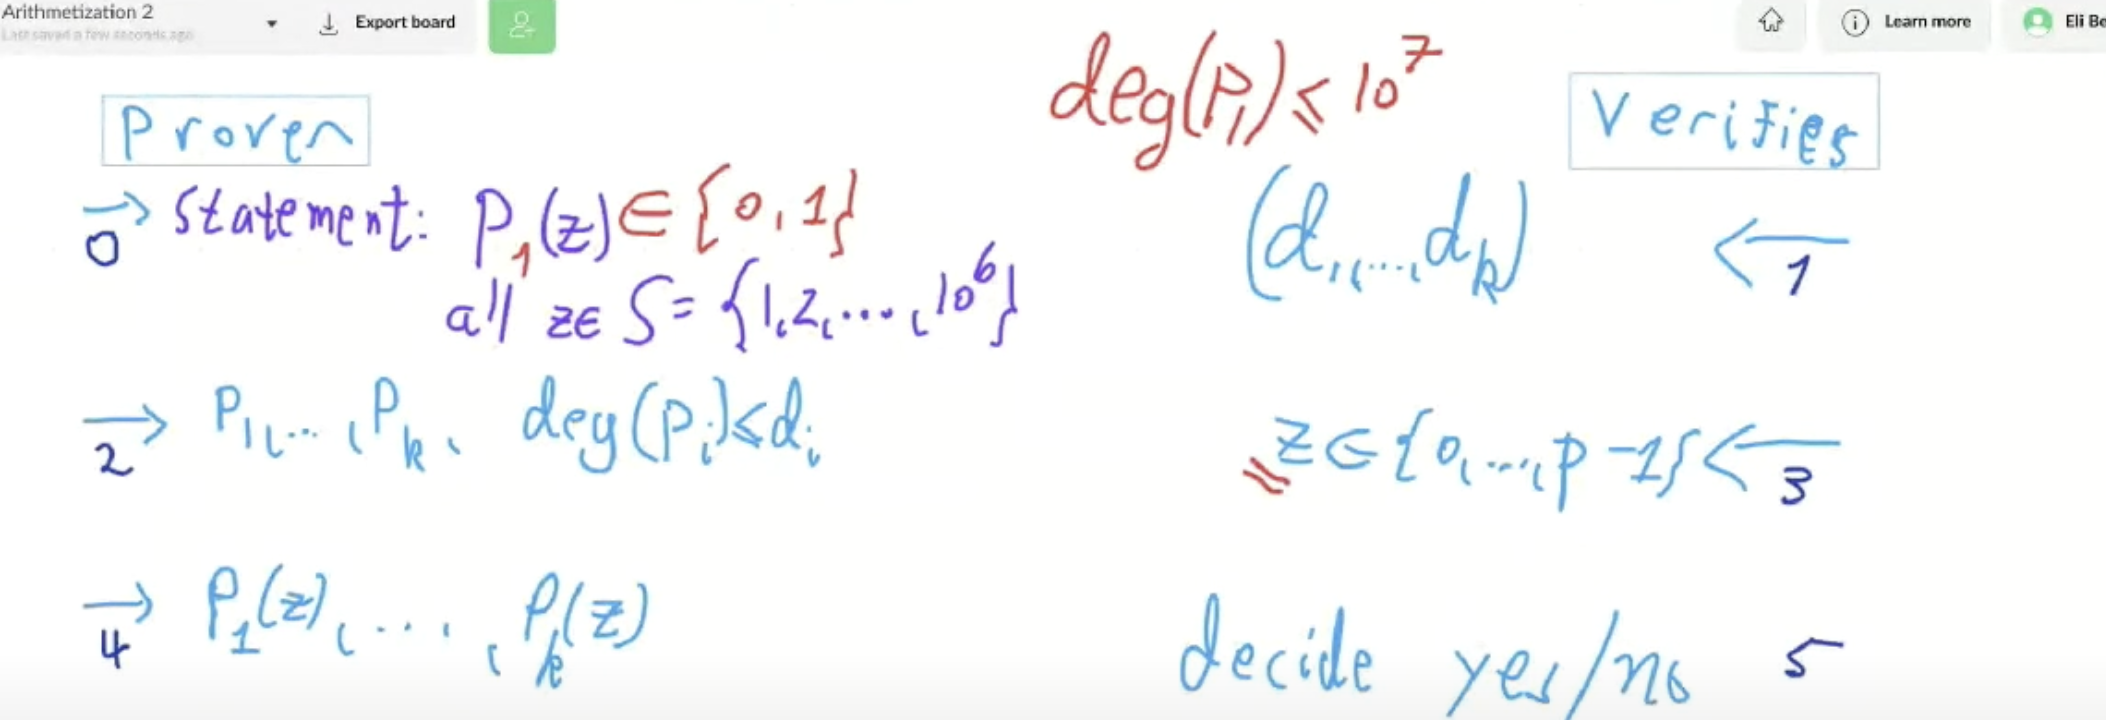 Arithmetization 2
Last saved a few seconds ago
Export board
Learn more
Eli Be
deg(P₁) ≤ 10⁷
Prover
Verifier
→ 0 Statement: P₁(z) ∈ {0, 1}
all z ∈ S = {1, 2, ..., 10⁶}
(d₁, ..., dₖ) ← 1
→ 2 P₁, ..., Pₖ, deg(Pᵢ) ≤ dᵢ
z ∈ {0, ..., p-1} ← 3
→ 4 P₁(z), ..., Pₖ(z)
decide yes/no 5